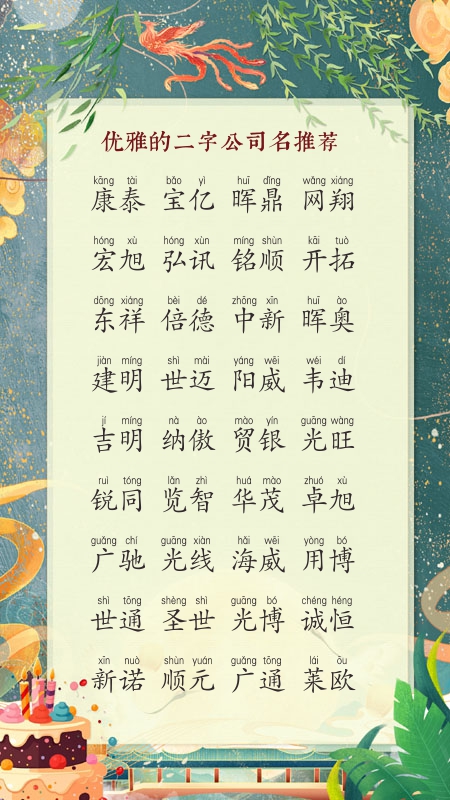 优雅的二字公司名推荐
kāng tài bǎo yì huī dǐng wǎng xiáng
康泰 宝亿 晖鼎 网翔
hóng xù hóng xùn míng shùn kāi tuò
宏旭 弘讯 铭顺 开拓
dōng xiáng bèi dé zhōng xīn huī ào
东祥 倍德 中新 晖奥
jiàn míng shì mài yáng wēi wéi dí
建明 世迈 阳威 韦迪
jí míng nà ào mào yín guāng wàng
吉明 纳傲 贸银 光旺
ruì tóng lǎn zhì huá mào zhuó xù
锐同 览智 华茂 卓旭
guǎng chí guāng xiàn hǎi wēi yòng bó
广驰 光线 海威 用博
shì tōng shèng shì guāng bó chéng héng
世通 圣世 光博 诚恒
xīn nuò shùn yuán guǎng tōng lái ōu
新诺 顺元 广通 莱欧